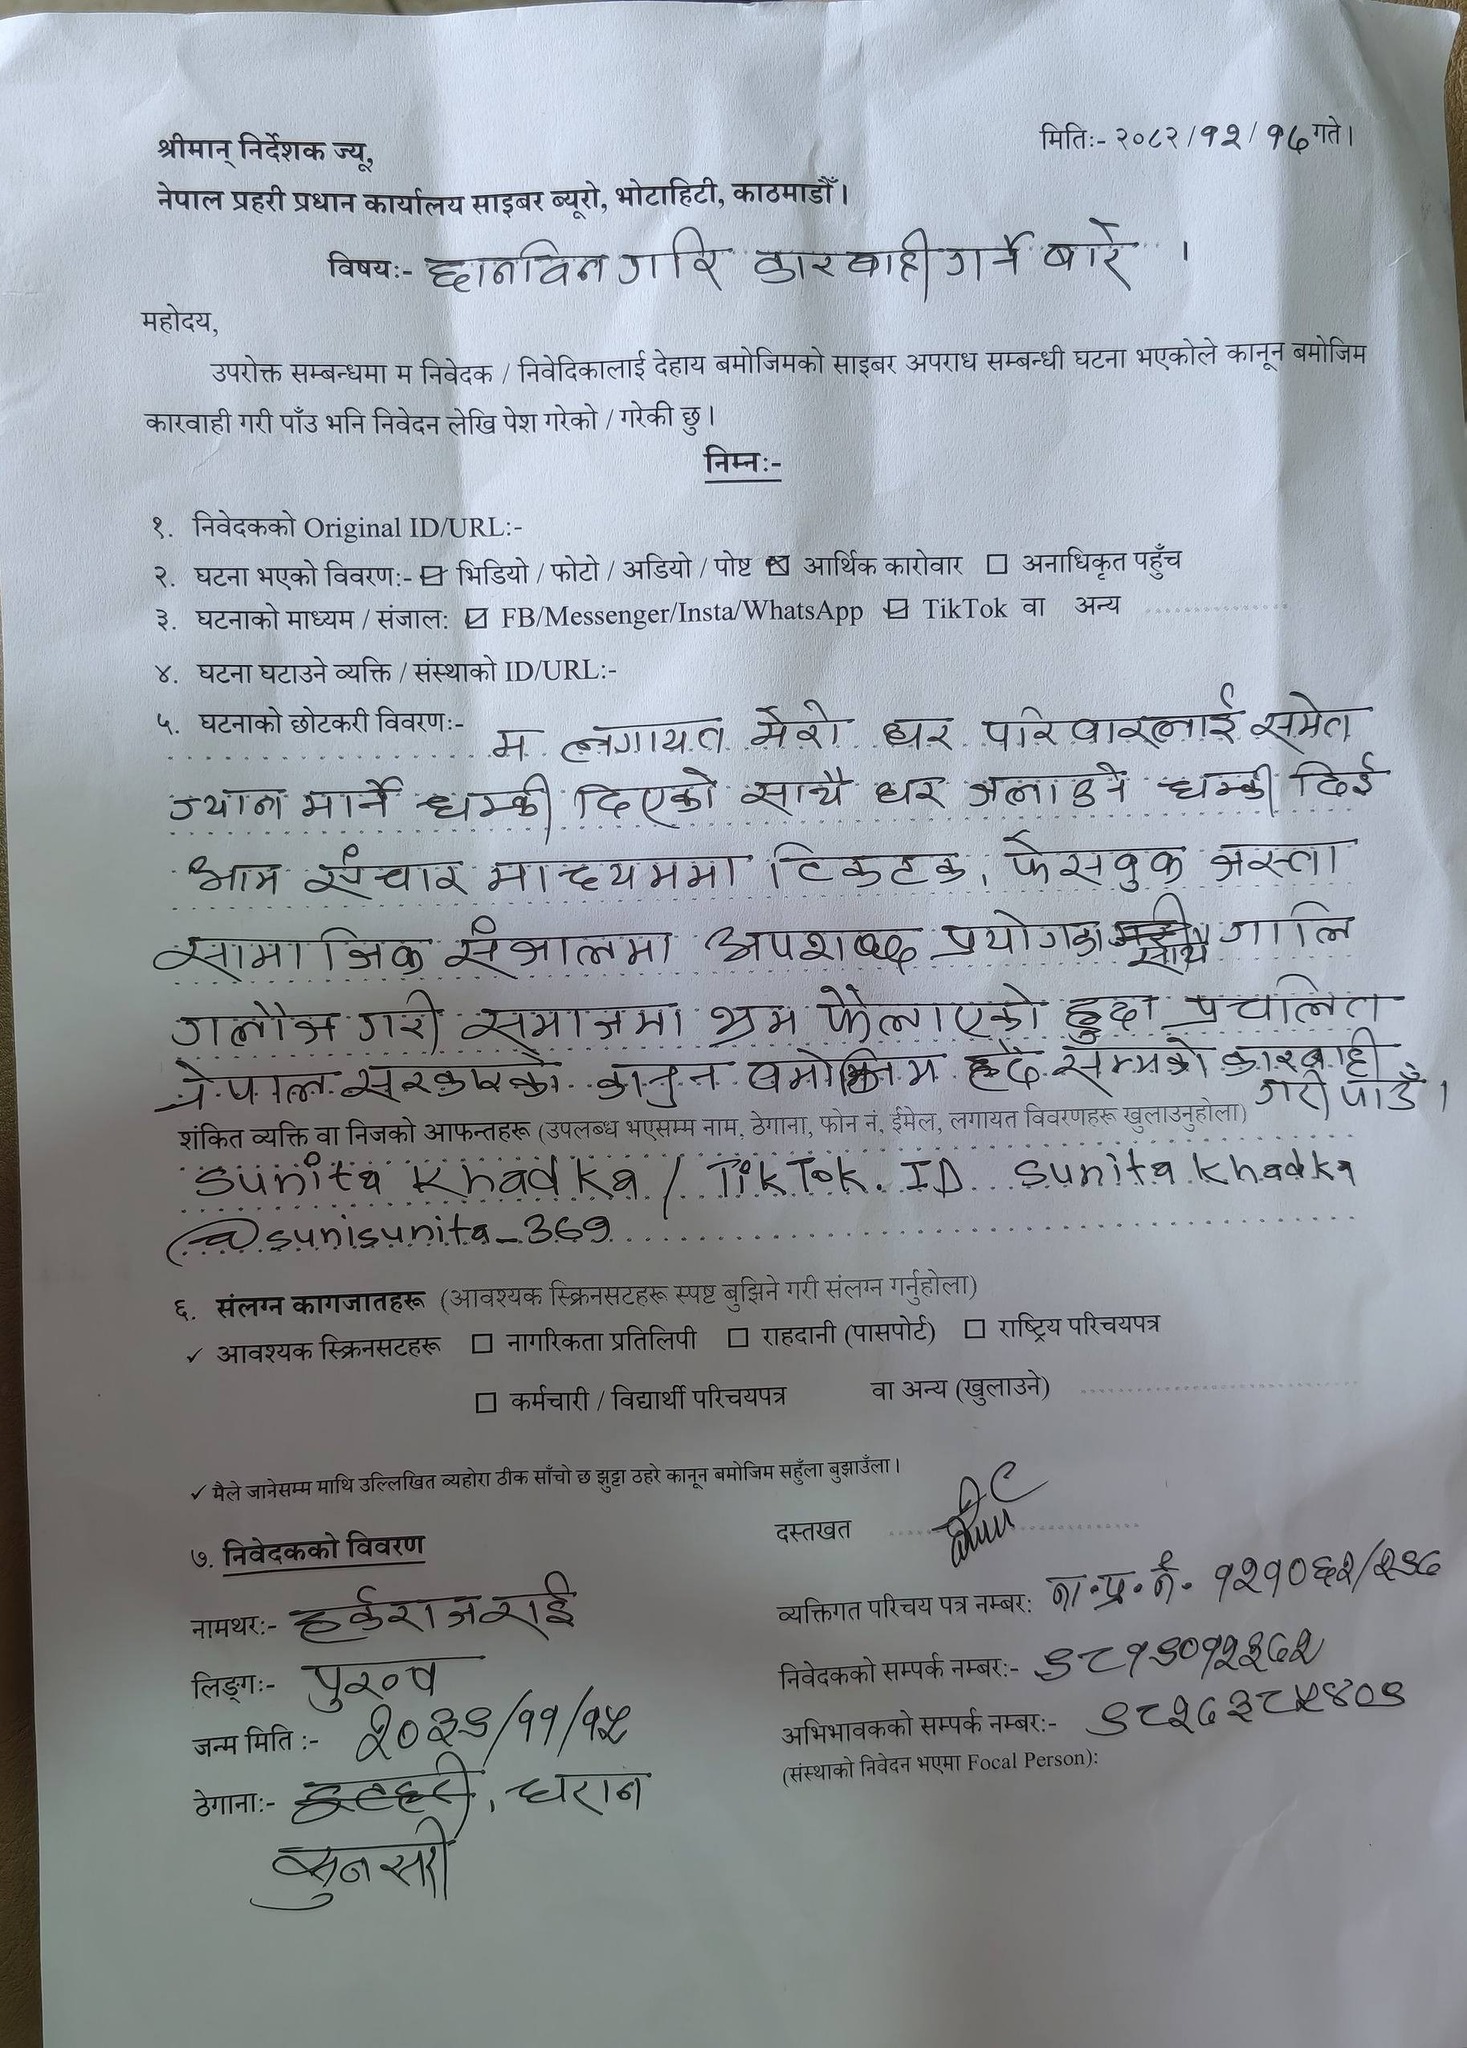 श्रीमान् निर्देशक ज्यू,
मितिः- २०८२/१२/१६ गते।
नेपाल प्रहरी प्रधान कार्यालय साइबर ब्यूरो, भोटाहिटी, काठमाडौँ।
विषयः- छानविन गरि कारवाही गर्ने बारे ।
महोदय,
उपरोक्त सम्बन्धमा म निवेदक / निवेदिकालाई देहाय बमोजिमको साइबर अपराध सम्बन्धी घटना भएकोले कानून बमोजिम
कारवाही गरी पाँउ भनि निवेदन लेखि पेश गरेको / गरेकी छु।
निम्नः-
१. निवेदकको Original ID/URL:-
२. घटना भएको विवरणः- ☑ भिडियो / फोटो / अडियो / पोष्ट ☒ आर्थिक कारोवार ☐ अनाधिकृत पहुँच
३. घटनाको माध्यम / संजाल: ☑ FB/Messenger/Insta/WhatsApp ☑ TikTok वा अन्य
४. घटना घटाउने व्यक्ति / संस्थाको ID/URL:-
५. घटनाको छोटकरी विवरणः- म लगायत मेरो घर परिवारलाई समेत
ज्यान मार्ने धम्की दिएको साथै घर जलाउने धम्की दिई
आम संचार माध्यममा टिकटक, फेसवुक जस्ता
सामाजिक संजालमा अपशब्द प्रयोगका साथै गालि
गलौज गरी समाजमा भ्रम फैलाएको हुदा प्रचलित
नेपाल सरकारको कानुन बमोजिम हदै सम्मको कारवाही
गरी पाउँ।
शंकित व्यक्ति वा निजको आफन्तहरू (उपलब्ध भएसम्म नाम, ठेगाना, फोन नं, ईमेल, लगायत विवरणहरू खुलाउनुहोला)
Sunita Khadka / TikTok. ID Sunita Khadka
@sunisunita_369
६. संलग्न कागजातहरू (आवश्यक स्क्रिनसटहरू स्पष्ट बुझिने गरी संलग्न गर्नुहोला)
✓ आवश्यक स्क्रिनसटहरू ☐ नागरिकता प्रतिलिपी ☐ राहदानी (पासपोर्ट) ☐ राष्ट्रिय परिचयपत्र
☐ कर्मचारी / विद्यार्थी परिचयपत्र वा अन्य (खुलाउने)
✓ मैले जानेसम्म माथि उल्लिखित व्यहोरा ठीक साँचो छ झुट्टा ठहरे कानून बमोजिम सहुँला बुझाउँला।
दस्तखत
७. निवेदकको विवरण
नामथरः- हर्कराज राई
व्यक्तिगत परिचय पत्र नम्बर: ना.प्र.नं. १२१०६२/२९६
लिङ्गः- पुरुष
निवेदकको सम्पर्क नम्बर:- ९८१९०१२३६२
जन्म मिति :- २०३९/११/१५
अभिभावकको सम्पर्क नम्बर:- ९८२६३८५४०९
(संस्थाको निवेदन भएमा Focal Person):
ठेगानाः- धरान
सुनसरी